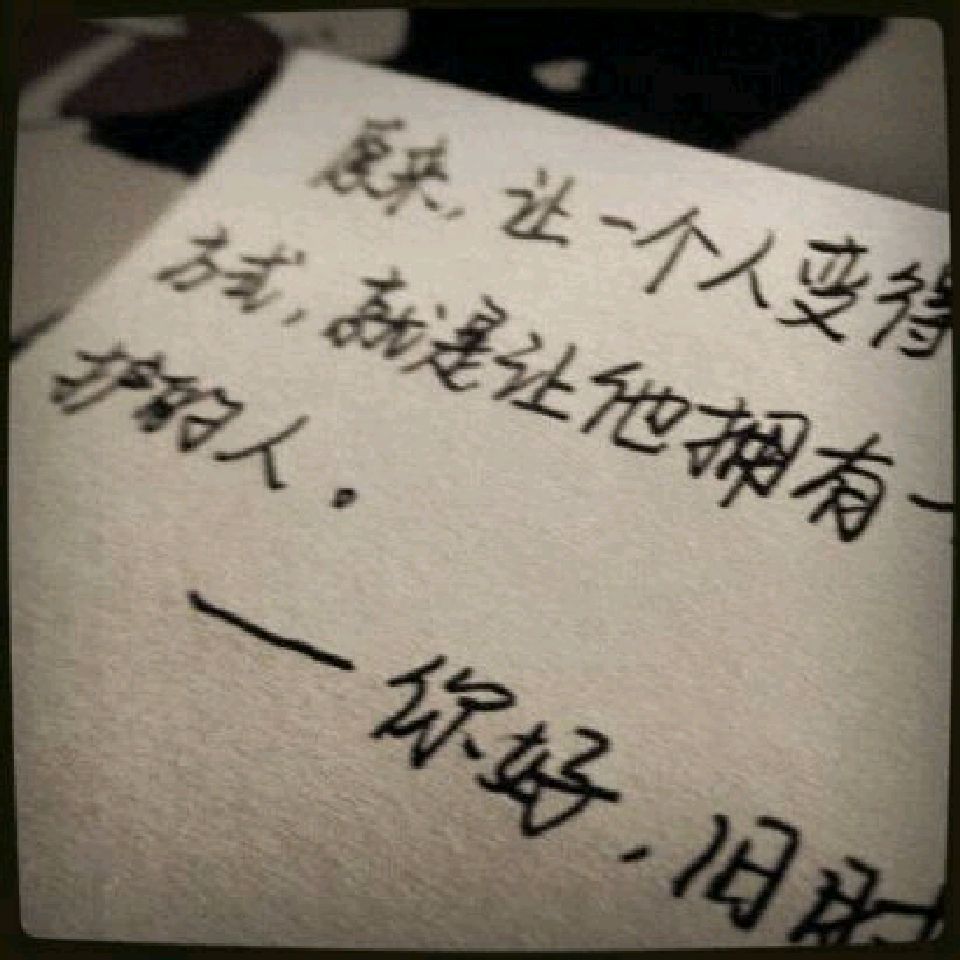 原来，让一个人变得
方式，就是让他拥有一
护的人。
—你好，旧时